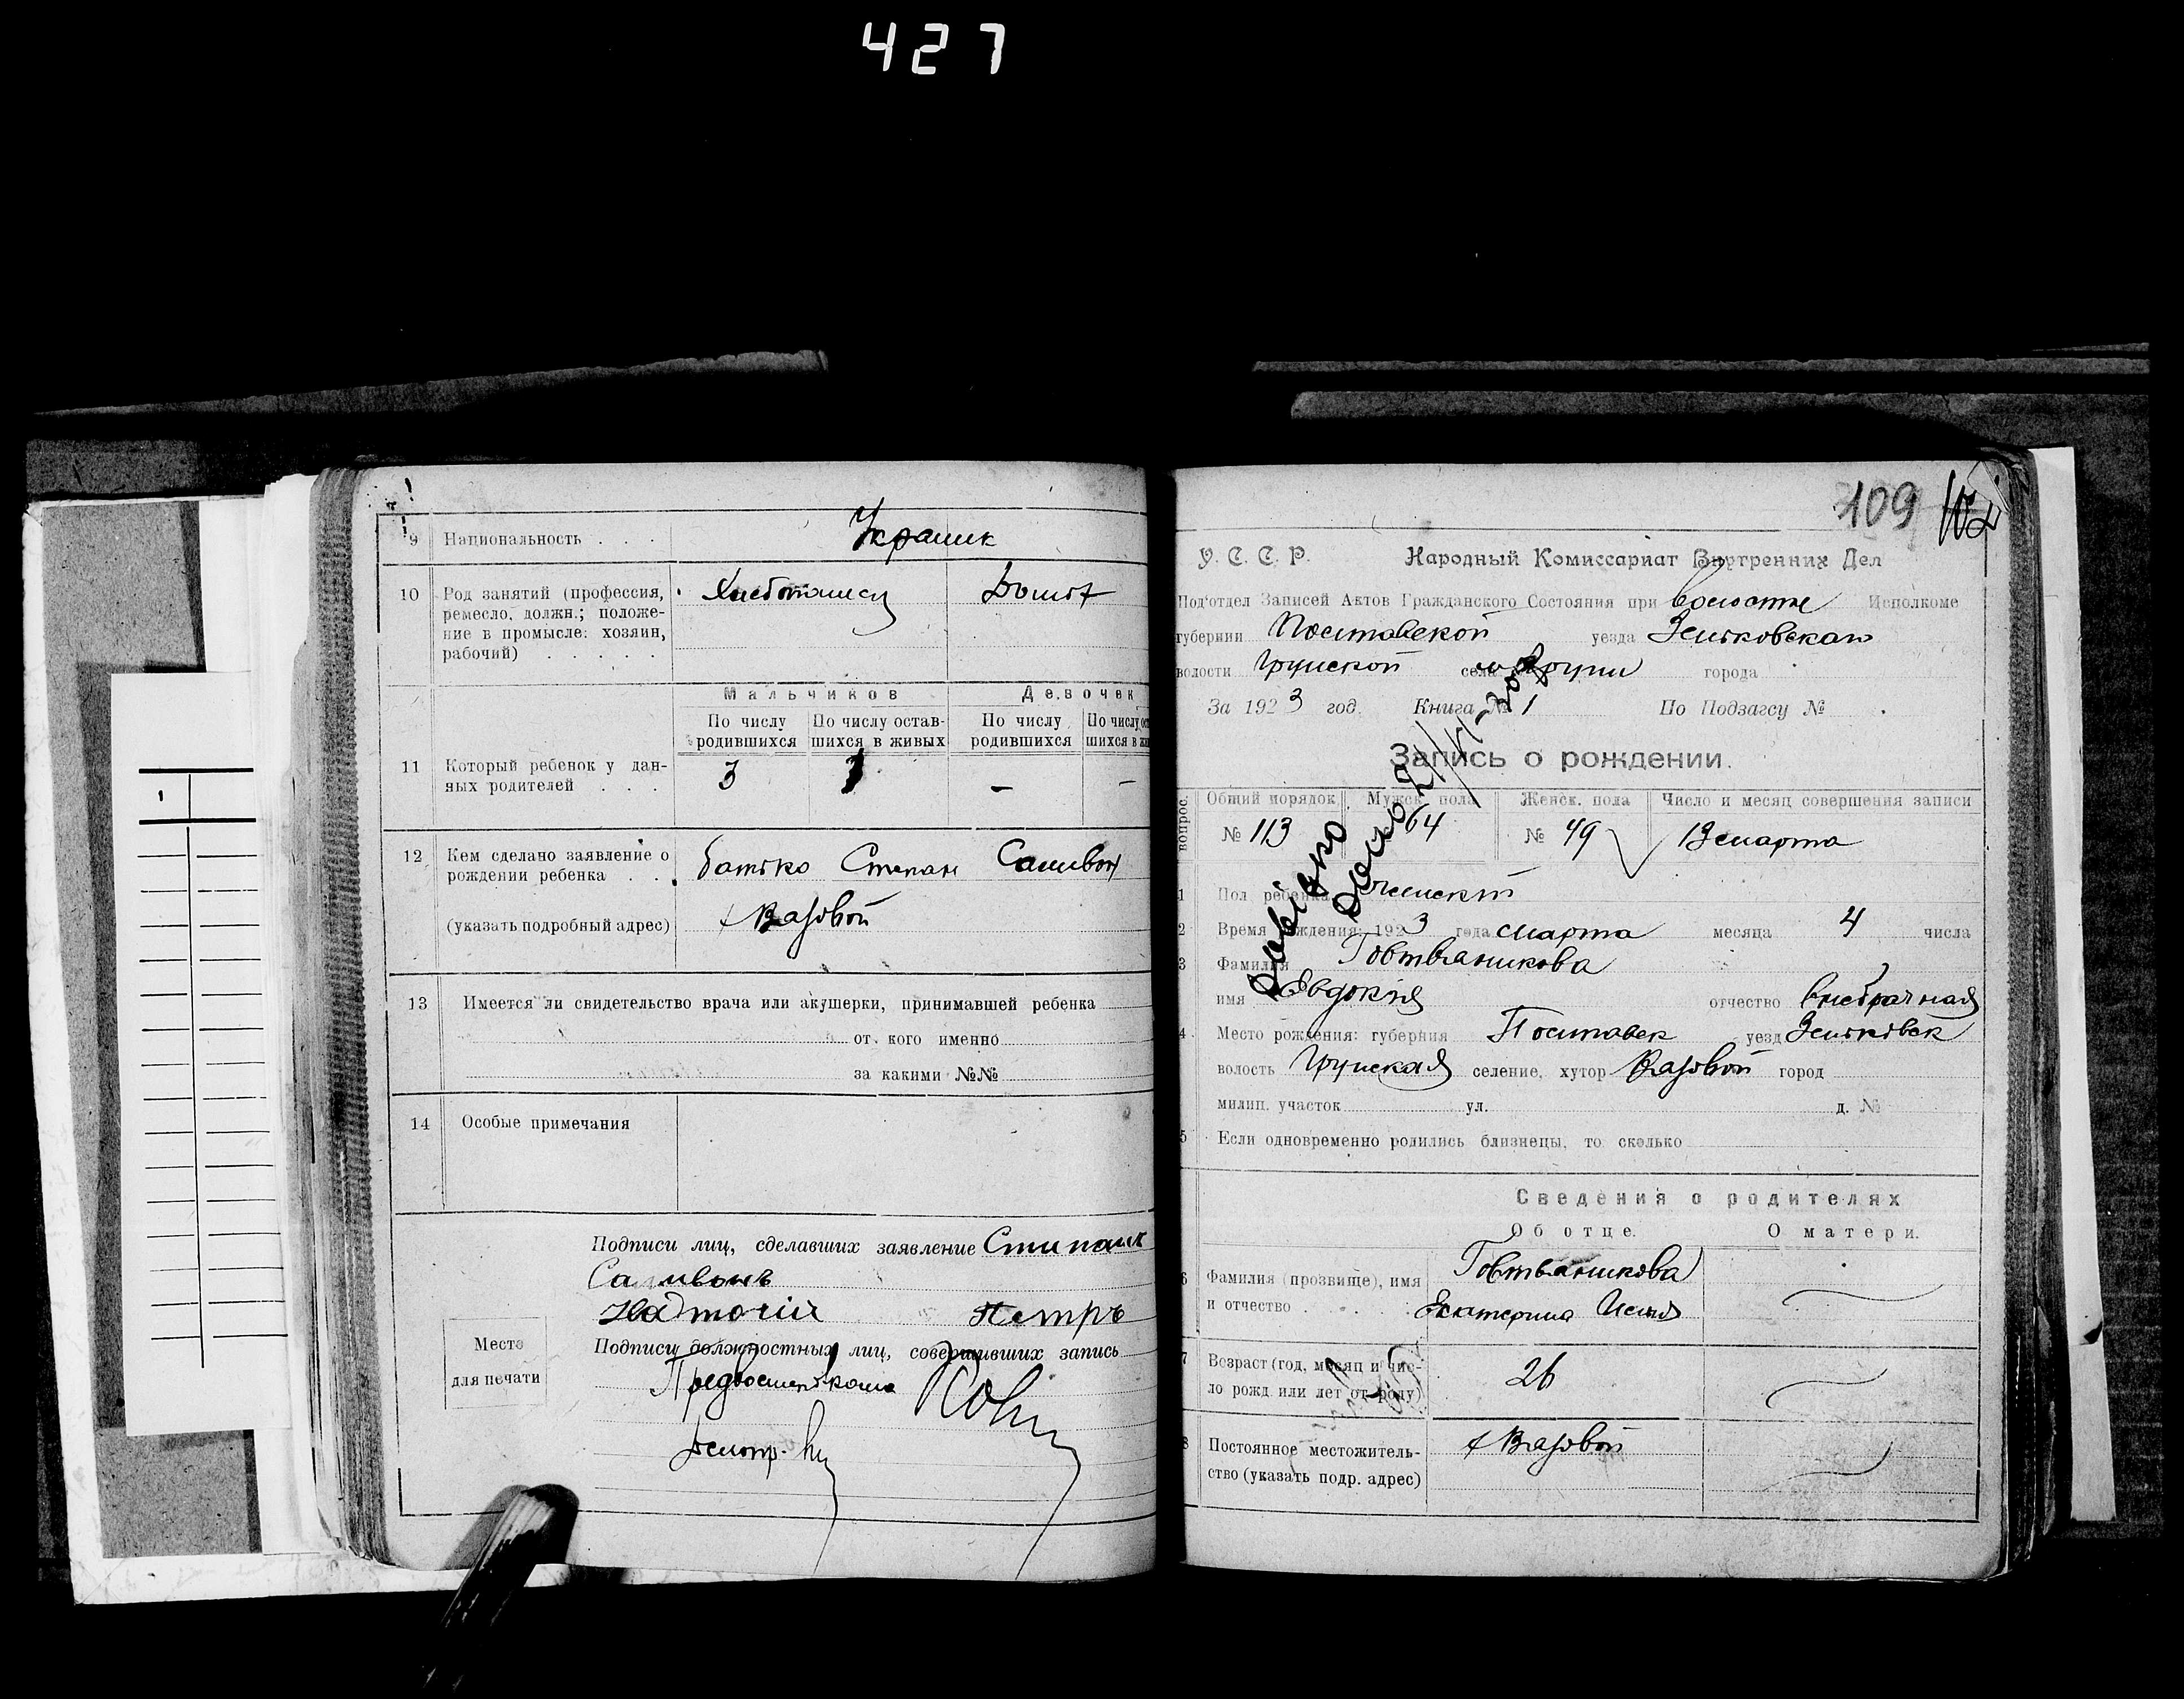 427
9 Национальность . . . Украинк
10 Род занятий (профессия,
ремесло, должн.; положе-
ние в промысле: хозяин,
рабочий) . . . . .
Мальчиков Девочек
По числу родившихся По числу остав-шихся в живых По числу родившихся По числу
11 Который ребенок у дан-
ных родителей . . . 3 1 — —
12 Кем сделано заявление о
рождении ребенка . . . батько Степан Саливон
(указать подробный адрес)
13 Имеется ли свидетельство врача или акушерки, принимавшей ребенка
от кого именно
за какими №№
14 Особые примечания
Подписи лиц, сделавших заявление Степанъ
Саливонъ
Надточій Петръ
Место
для печати
Подписи должностных лиц, совершивших запись
109
У. С. С. Р. Народный Комиссариат Внутренних Дел
Подотдел Записей Актов Гражданского Состояния при волостне Исполкоме
губернии Полтавской уезда Зеньковскаго
волости Грунской села Груни города
За 1923 год. Книга № 1 По Подзагсу № .
Запись о рождении.
вопрос. Общий порядок Мужск. пола Женск. пола Число и месяц совершения записи
№ 113 64 № 49 13 марта
1 Пол ребенка женский
2 Время рождения: 1923 года марта месяца 4 числа
3 Фамилия Говтваникова
имя Евдокія отчество внебрачная
4 Место рождения: губерния Полтавск уезд Зеньковск
волость Грунская селение, хутор город
милиц. участок ул. д. №
5 Если одновременно родились близнецы, то сколько
Сведения о родителях
Об отце. О матери.
6 Фамилия (прозвище), имя
и отчество . . . . Говтваникова
Екатерина
7 Возраст (год, месяц и чис-
ло рожд. или лет от роду) 26
8 Постоянное местожитель-
ство (указать подр. адрес)